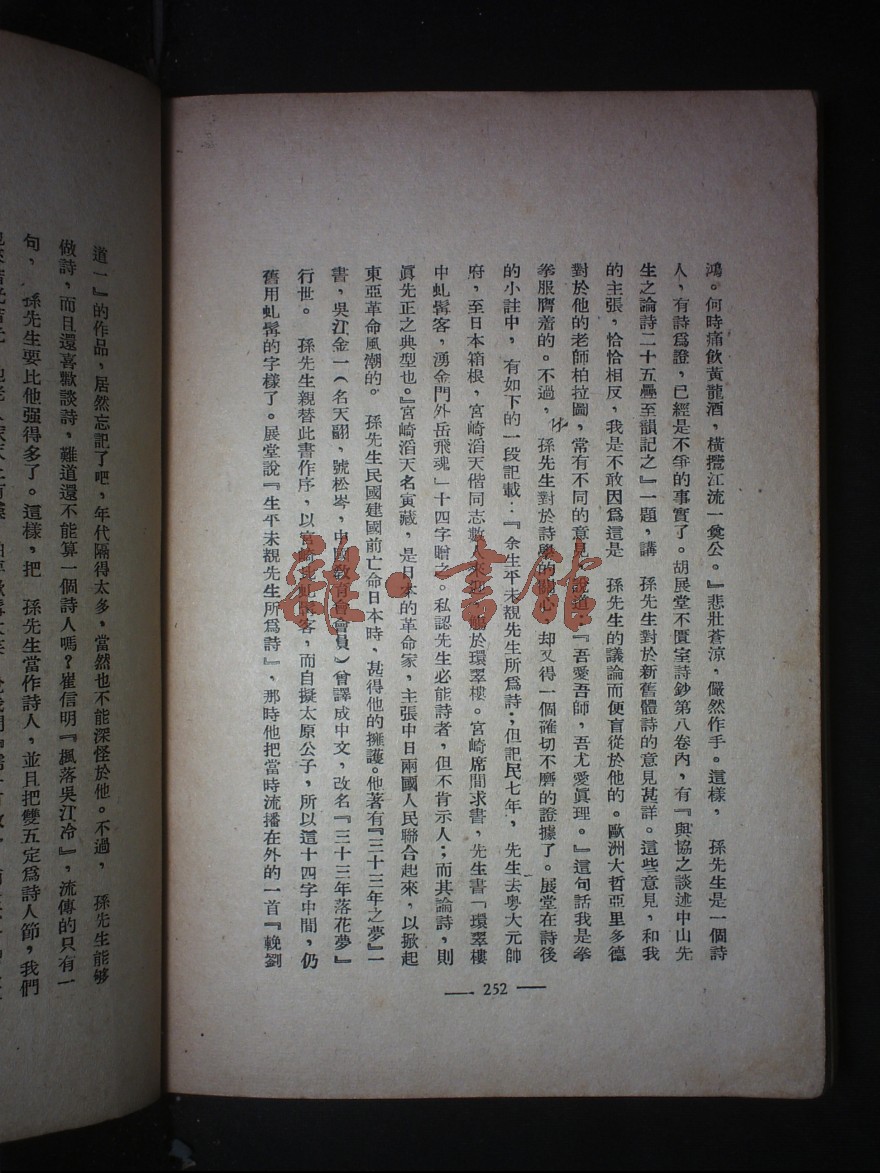 鴻。何時痛飲黃龍酒，橫攬江流一奠公。』悲壯蒼涼，儼然作手。這樣，　孫先生是一個詩
人，有詩爲證，已經是不爭的事實了。胡展堂不匱室詩鈔第八卷內，有『與協之談述中山先
生之論詩二十五疊至韻記之』一題，講　孫先生對於新舊體詩的意見甚詳。這些意見，和我
的主張，恰恰相反，我是不敢因爲這是　孫先生的議論而便盲從於他的。歐洲大哲亞里多德
對於他的老師柏拉圖，常有不同的意見，說道：『吾愛吾師，吾尤愛眞理。』這句話我是拳
拳服膺着的。不過，　孫先生對於詩學的關心，却又得一個確切不磨的證據了。展堂在詩後
的小註中，有如下的一段記載：『余生平未覩先生所爲詩；但記民七年，　先生去粤大元帥
府，至日本箱根，宮崎滔天偕同志數人來迎，觴於環翠樓。宮崎席間求書，先生書「環翠樓
中虬髯客，湧金門外岳飛魂」十四字贈之。私認先生必能詩者，但不肯示人；而其論詩，則
眞先正之典型也。』宮崎滔天名寅藏，是日本的革命家，主張中日兩國人民聯合起來，以掀起
東亞革命風潮的。　孫先生民國建國前亡命日本時，甚得他的擁護。他著有『三十三年之夢』一
書，吳江金一（名天翮，號松岑，中國敎育會會員）曾譯成中文，改名『三十三年落花夢』
行世。　孫先生親替此書作序，以宮崎比虬髯客，而自擬太原公子，所以這十四字中間，仍
舊用虬髯的字樣了。展堂說『生平未覩先生所爲詩』，那時他把當時流播在外的一首『輓劉
— 252 —
道一』的作品，居然忘記了吧，年代隔得太多，當然也不能深怪於他。不過，　孫先生能够
做詩，而且還喜歡談詩，難道還不能算一個詩人嗎？崔信明『楓落吳江冷』，流傳的只有一
句，　孫先生要比他强得多了。這樣，把　孫先生當作詩人，並且把雙五定爲詩人節，我們
雜·書館